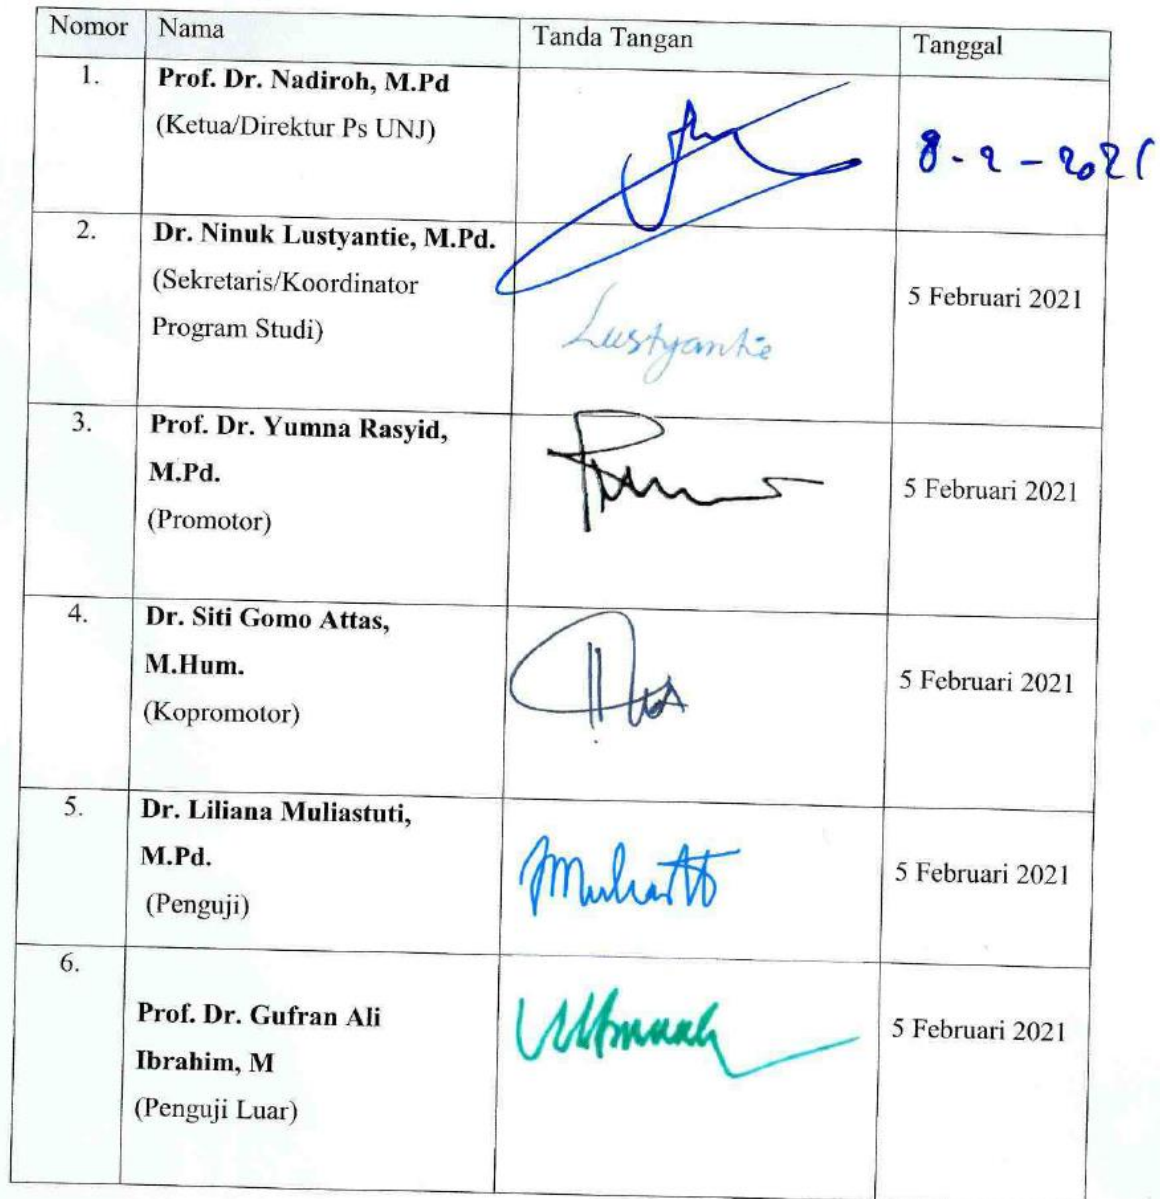 Nomor Nama Tanda Tangan Tanggal
1. Prof. Dr. Nadiroh, M.Pd
(Ketua/Direktur Ps UNJ)
8 - 2 - 2021
2. Dr. Ninuk Lustyantie, M.Pd.
(Sekretaris/Koordinator
Program Studi)
Lustyantie
5 Februari 2021
3. Prof. Dr. Yumna Rasyid,
M.Pd.
(Promotor)
5 Februari 2021
4. Dr. Siti Gomo Attas,
M.Hum.
(Kopromotor)
5 Februari 2021
5. Dr. Liliana Muliastuti,
M.Pd.
(Penguji)
5 Februari 2021
6.
Prof. Dr. Gufran Ali
Ibrahim, M
(Penguji Luar)
5 Februari 2021